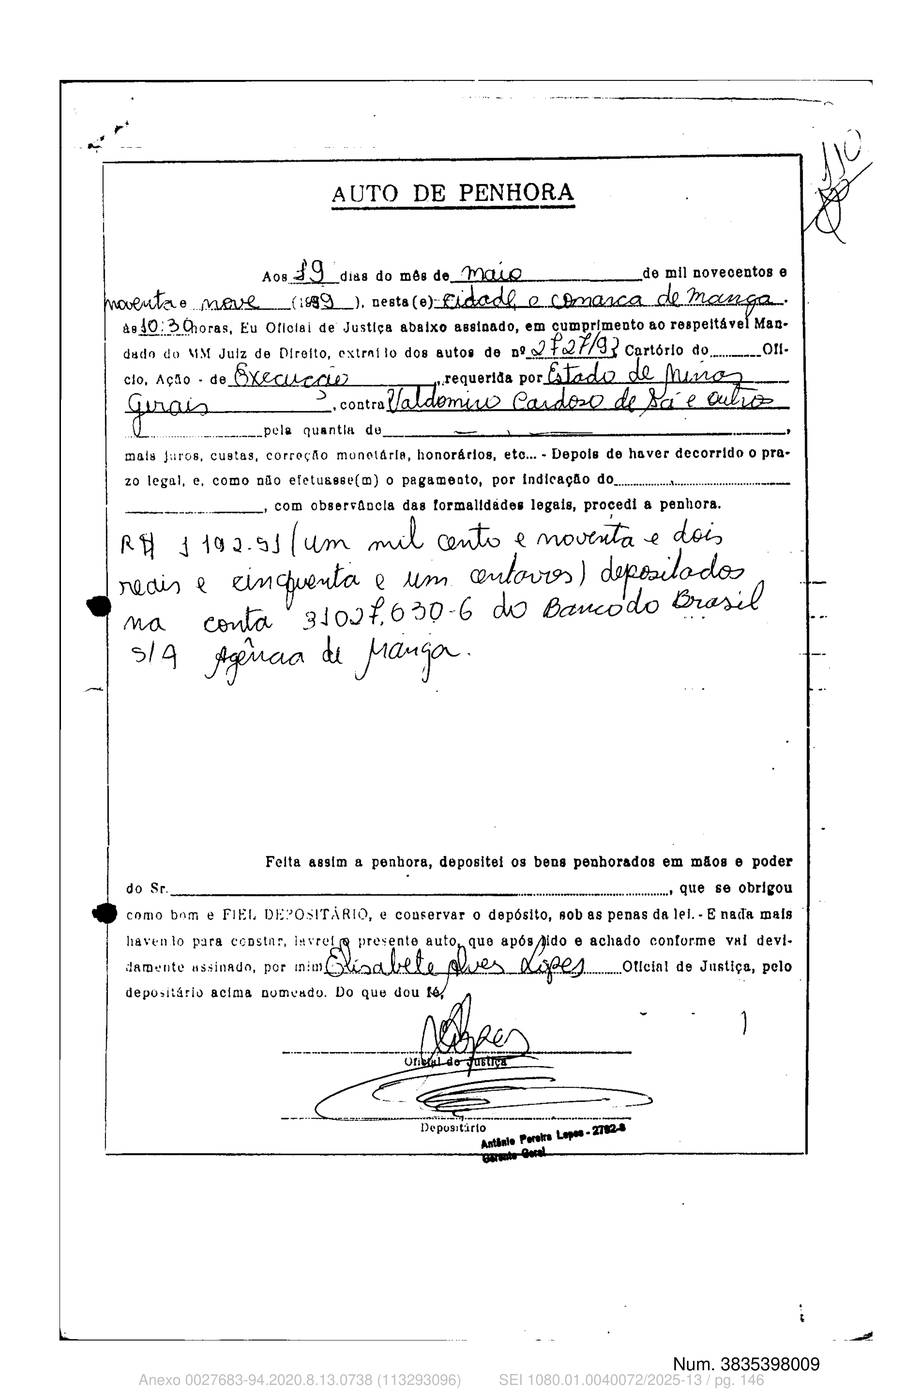 110
AUTO DE PENHORA
Aos 19 dias do mês de maio de mil novecentos e
noventa e nove (1999), nesta(e) cidade e comarca de Manga.
às 10:30 horas, Eu Oficial de Justiça abaixo assinado, em cumprimento ao respeitável Man-
dado do MM Juiz de Direito, extraido dos autos de nº 2727/93 Cartório do Ofí-
cio, Ação - de Execução, requerida por Estado de Minas
Gerais, contra Valdomiro Cardoso de Sá e outros
pela quantia de
mais juros, custas, correção monetária, honorários, etc... - Depois de haver decorrido o pra-
zo legal, e, como não efetuasse(m) o pagamento, por indicação do
, com observância das formalidades legais, procedi a penhora.
R$ 1 192.51 (um mil cento e noventa e dois
reais e cinquenta e um centavos) depositados
na conta 31027.030-6 do Banco do Brasil
S/A Agência de Manga.
Feita assim a penhora, depositei os bens penhorados em mãos e poder
do Sr. , que se obrigou
como bom e FIEL DEPOSITÁRIO, e conservar o depósito, sob as penas da lei. - E nada mais
havendo para constar, lavrei o presente auto, que após lido e achado conforme vai devi-
damente assinado, por mim Elisabete Alves Lopes Oficial de Justiça, pelo
depositário acima nomeado. Do que dou fé,
Oficial de Justiça
Depositário
Antônio Pereira Lopes - 2792-8
Gerente Geral
Num. 3835398009
Anexo 0027683-94.2020.8.13.0738 (113293096) SEI 1080.01.0040072/2025-13 / pg. 146